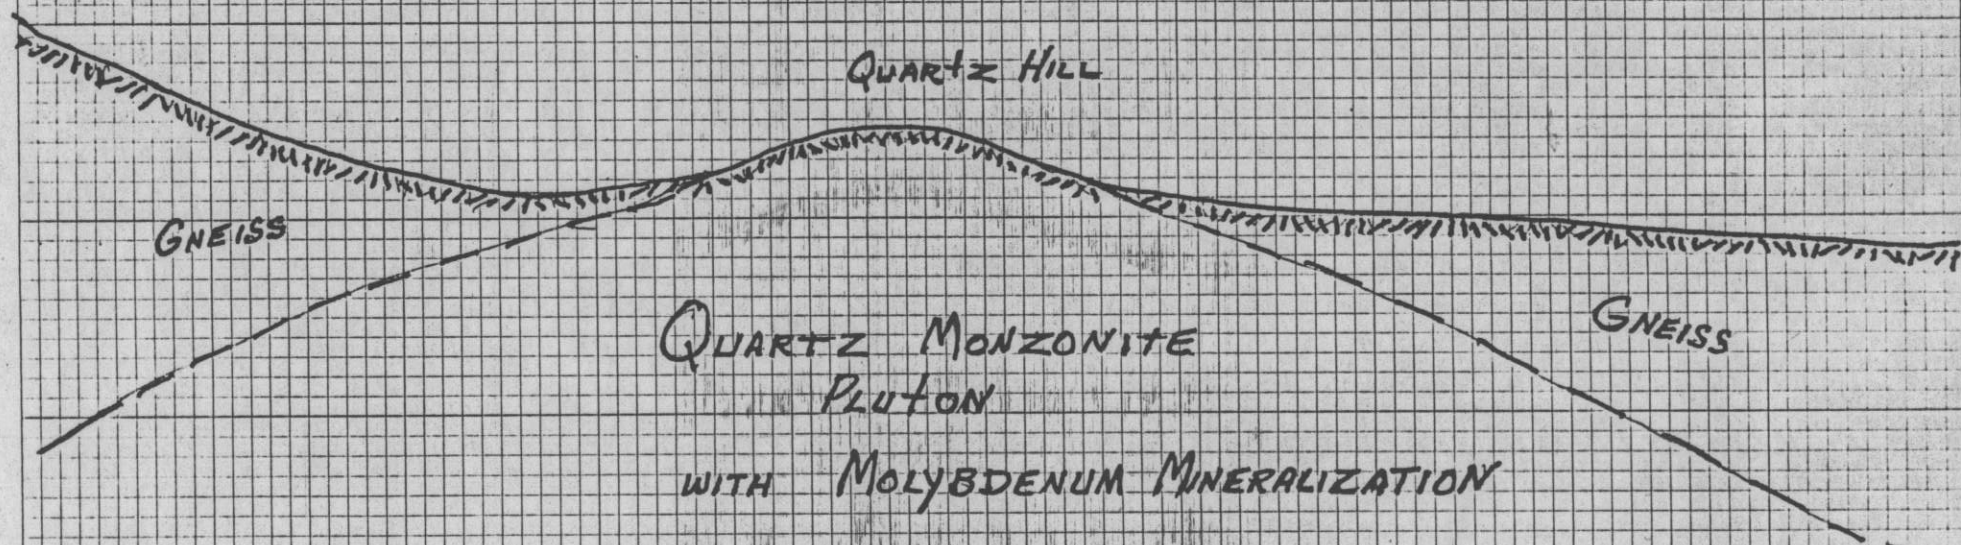 QUARTZ HILL
GNEISS
GNEISS
QUARTZ MONZONITE
PLUTON
WITH MOLYBDENUM MINERALIZATION